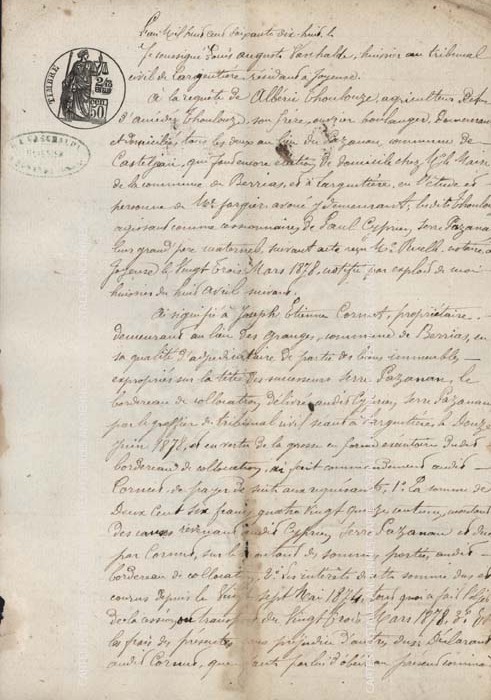 L'an mil huit cent soixante dix huit le
Je soussigné Louis Auguste Vaschalde, huissier au tribunal
civil de Largentière résidant à Joyeuse.
A la requête de Albéric Thoulouze, agriculteur
d'amédée Thoulouze, son frère, ouvrier boulanger, demeurant
et domiciliés tous les deux au lieu du Pazanan, commune de
Casteljau, qui font encore élection de domicile chez M. le Maire
de la commune de Berrias, et à Largentière, en l'étude et
personne de Me avoué y demeurant, lesdits Thoulouze
agissant comme cessionnaires de Paul Cyprien Serre Pazanan
leur grand père maternel, suivant acte reçu Me notaire à
Joyeuse le Vingt Trois Mars 1878, notifié par exploit de moi
huissier du huit avril suivant.
Ai signifié à Joseph Etienne Cornut, propriétaire
demeurant au lieu des Granges, commune de Berrias, en
sa qualité d'adjudicataire de partie des biens immeubles
expropriés sur la tête des successeurs Serre Pazanan, le
bordereau de collocation délivré audit Cyprien Serre Pazanan
par le greffier du tribunal civil séant à Largentière le Douze
Juin 1878, et en vertu de la grosse en forme exécutoire dudit
bordereau de collocation, ai fait commandement audit
Cornut de payer de suite aux requérants, 1° la somme de
Deux Cent six francs quatre vingt centimes, montant
des causes revenant audit Cyprien Serre Pazanan et dues
par Cornut, sur le montant des sommes portées audit
bordereau de collocation, 2° les intérêts de cette somme dus et
courus depuis le Vingt sept Mai 1874, tous quoi a fait l'objet
de la cession ou transport du Vingt Trois Mars 1878, 3° Et
les frais des présentes, sans préjudice d'autres dus, Déclarant
audit Cornut, que faute par lui d'obéir au présent comman
TIMBRE
50
HUISSIER